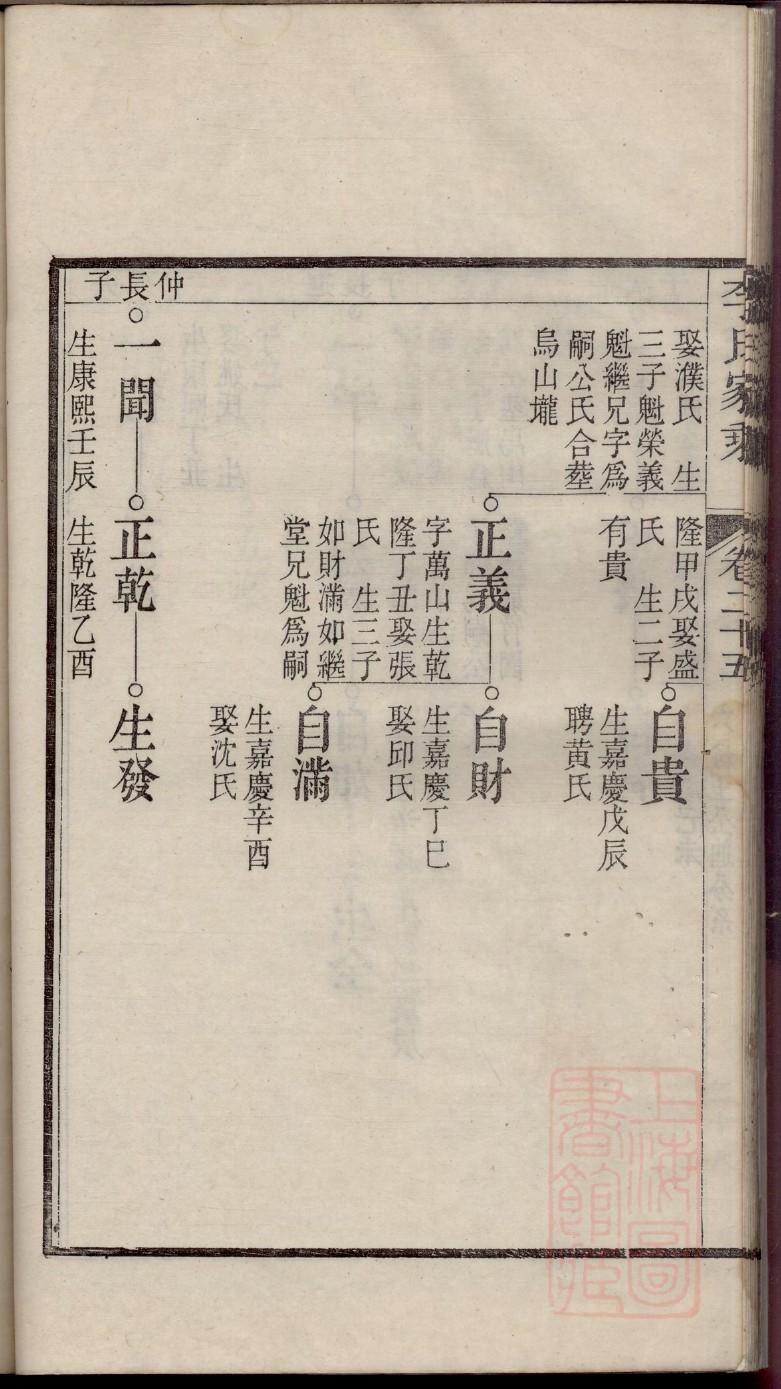 李氏家乘
卷二十五
娶濮氏　生
三子魁榮義
魁繼兄字爲
嗣公氏合塟
烏山壠
隆甲戌娶盛
氏　生二子
有貴
自貴
生嘉慶戊辰
聘黃氏
正義
字萬山生乾
隆丁丑娶張
氏　生三子
如財滿如繼
堂兄魁爲嗣
自財
生嘉慶丁巳
娶邱氏
自滿
生嘉慶辛酉
娶沈氏
仲長子
一聞
生康熙壬辰
正乾
生乾隆乙酉
生發
上海圖
書館藏